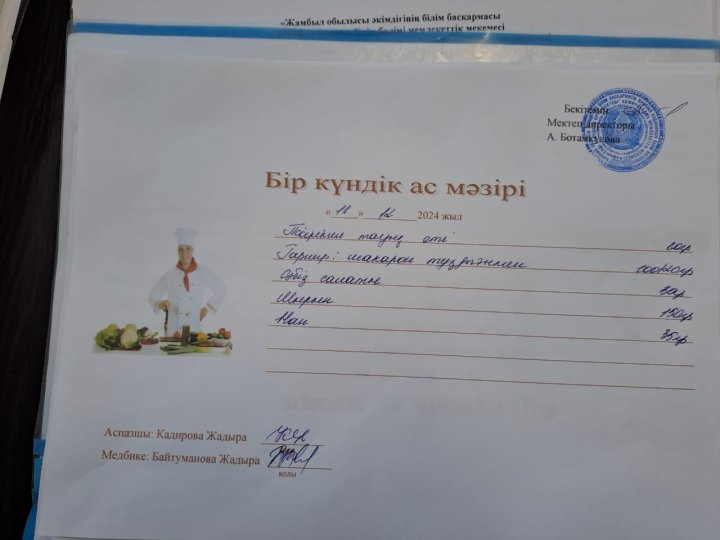 «Жамбыл обылысы әкімдігінің білім басқармасы
бөлімі мемлекеттік мекемесі
Бекітемін
Мектеп директоры
А. Ботамкулова
Бір күндік ас мәзірі
« 11 » 12 2024 жыл
тауық еті
Гарнир: макарон тұздықпен
Сәбіз салаты 50гр
Шырын 150гр
Нан 35гр
Аспазшы: Кадирова Жадыра
Медбике: Байтуманова Жадыра
қолы